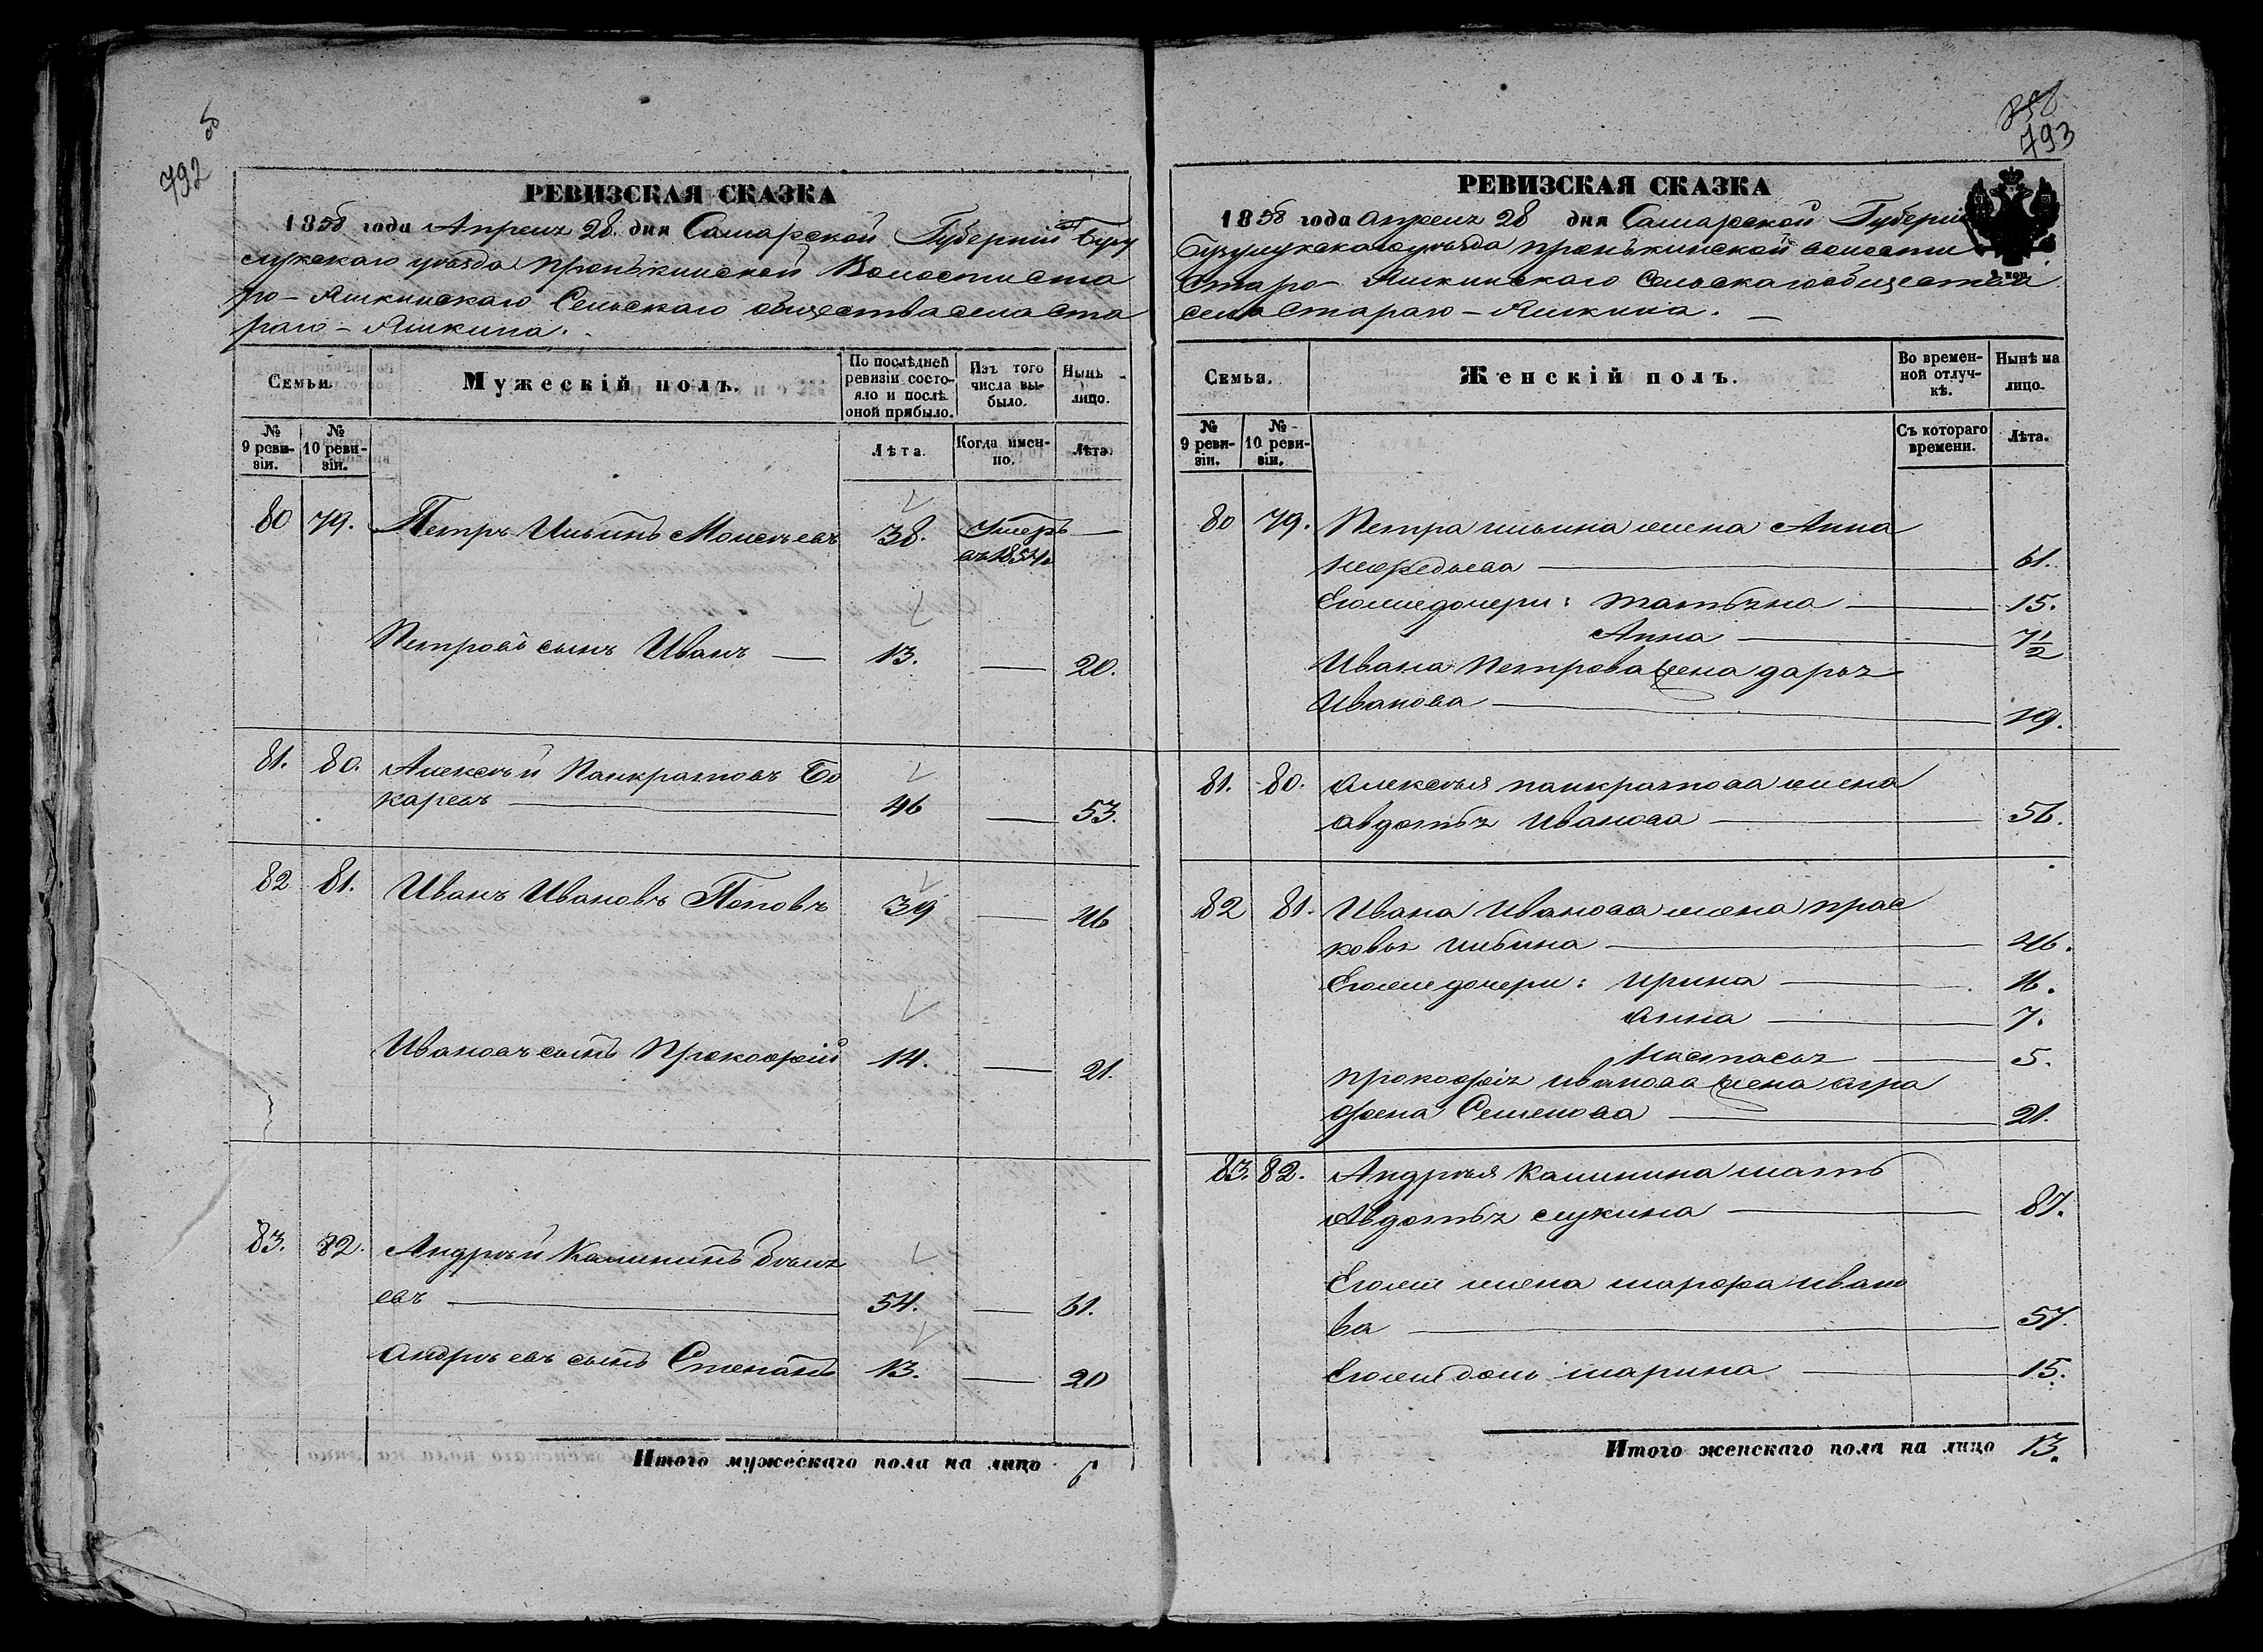 792 об
РЕВИЗСКАЯ СКАЗКА
1858 года Апреля 28 дня Самарской Губерніи Бузу
лукскаго уѣзда Пронькинской Волости Ста
ро-Яшкинскаго Сельскаго общества села Ста
раго-Яшкина.
Семьи.
Мужескій полъ.
По послѣдней ревизіи состояло и послѣ оной прибыло.
Изъ того числа выбыло.
Нынѣ на лицо.
№ 9 ревизіи.
№ 10 ревизіи.
Лѣта.
Когда именно.
Лѣта.
80 79. Петръ Ильинъ Моисѣевъ 38. Умеръ —
въ 1857
Петровъ сынъ Иванъ — 13. — 20.
81. 80. Алексѣй Панкратовъ Бо
каревъ — 46 — 53.
82 81. Иванъ Ивановъ Поповъ 39 — 46
Ивановъ сынъ Прокофій 14. — 21.
83. 82. Андрѣй Калининъ
евъ — 54. — 61.
Андрѣевъ сынъ Степанъ 13. — 20
Итого мужескаго пола на лицо 6
858
793
РЕВИЗСКАЯ СКАЗКА
1858 года Апреля 28 дня Самарской Губерніи
Бузулукскаго уѣзда Пронькинской волости
Старо-Яшкинскаго Сельскаго общества
села Стараго-Яшкина. —
Семьи.
Женскій полъ.
Во временной отлучкѣ.
Нынѣ на лицо.
№ 9 ревизіи.
№ 10 ревизіи.
Съ котораго времени.
Лѣта.
80 79. Петра Ильина жена Анна
— 61.
Егоже дочери: Татьяна — 15.
Анна — 7 1/2
Ивана Петрова жена Дарья
Иванова — 19.
81. 80. Алексѣя Панкратова жена
Авдотья Иванова — 56.
82 81. Ивана Иванова жена Прас
ковья Ильина — 46.
Егоже дочери: Ирина — 11.
Анна — 7.
Настасья — 5.
Прокофія Иванова жена Агра
фена Семенова — 21.
83. 82. Андрѣя Калинина мать
Авдотья Лукина — 87.
Егоже жена Марфа Ивано
ва — 57.
Егоже дочь Марина — 15.
Итого женскаго пола на лицо 13.